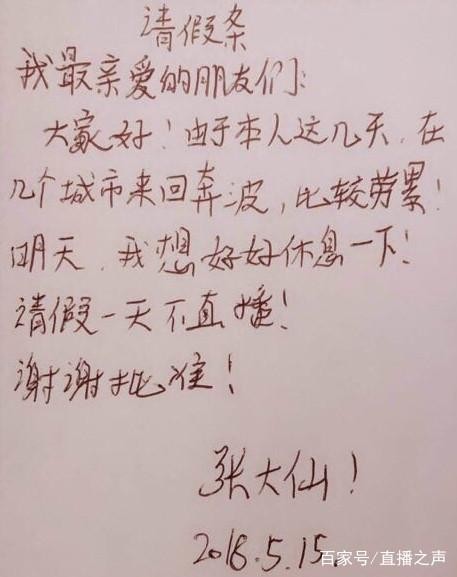 请假条
我最亲爱的朋友们:
大家好!由于本人这几天,在
几个城市来回奔波,比较劳累!
明天,我想好好休息一下!
请假一天不直播!
谢谢批准!
张大仙!
2018.5.15.
百家号/直播之声